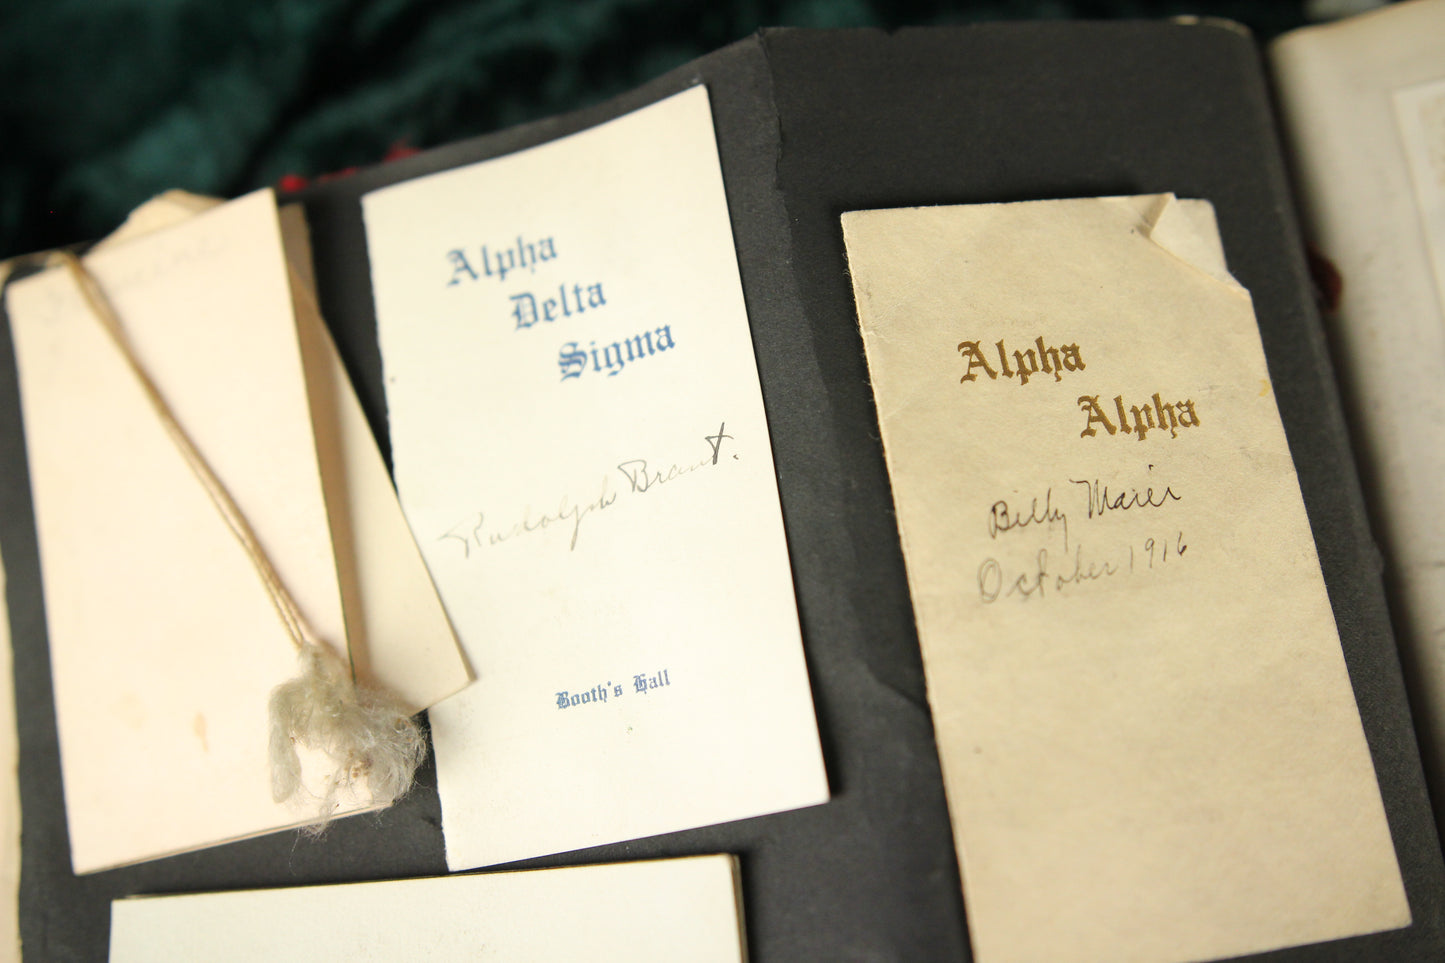 Alpha
Delta
Sigma
Rudolph Brant.
Booth's Hall
Alpha
Alpha
Billy Maier
October 1916